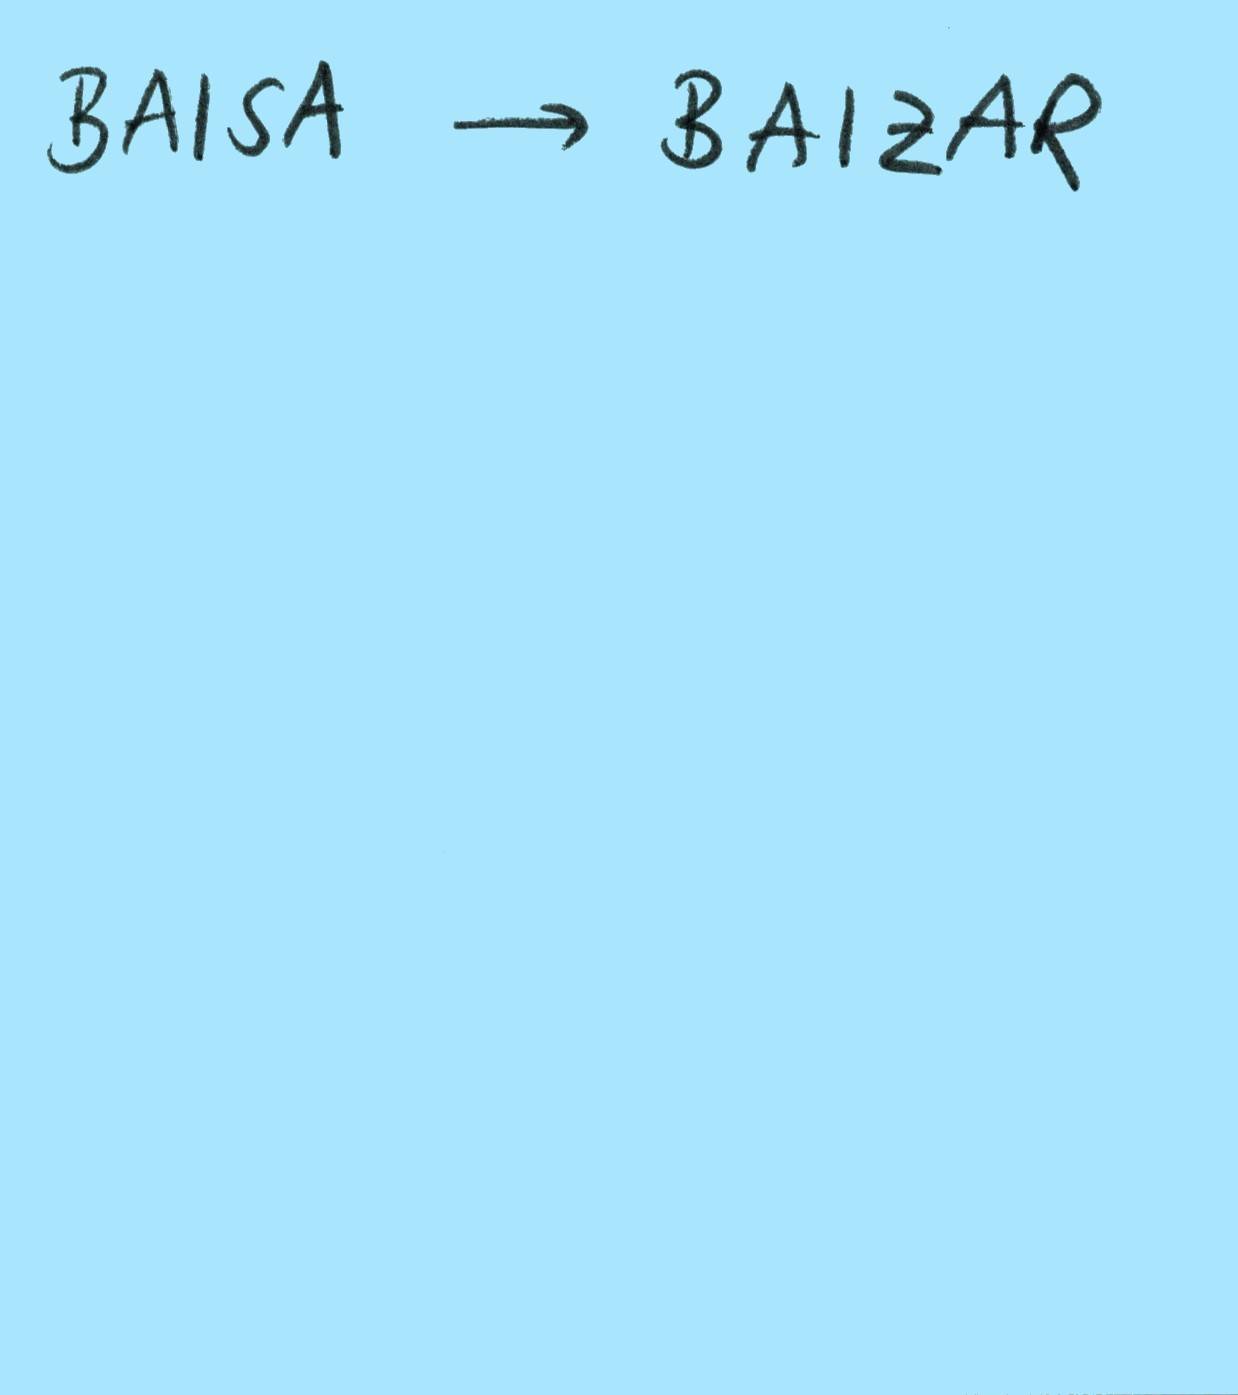 BAISA → BAIZAR